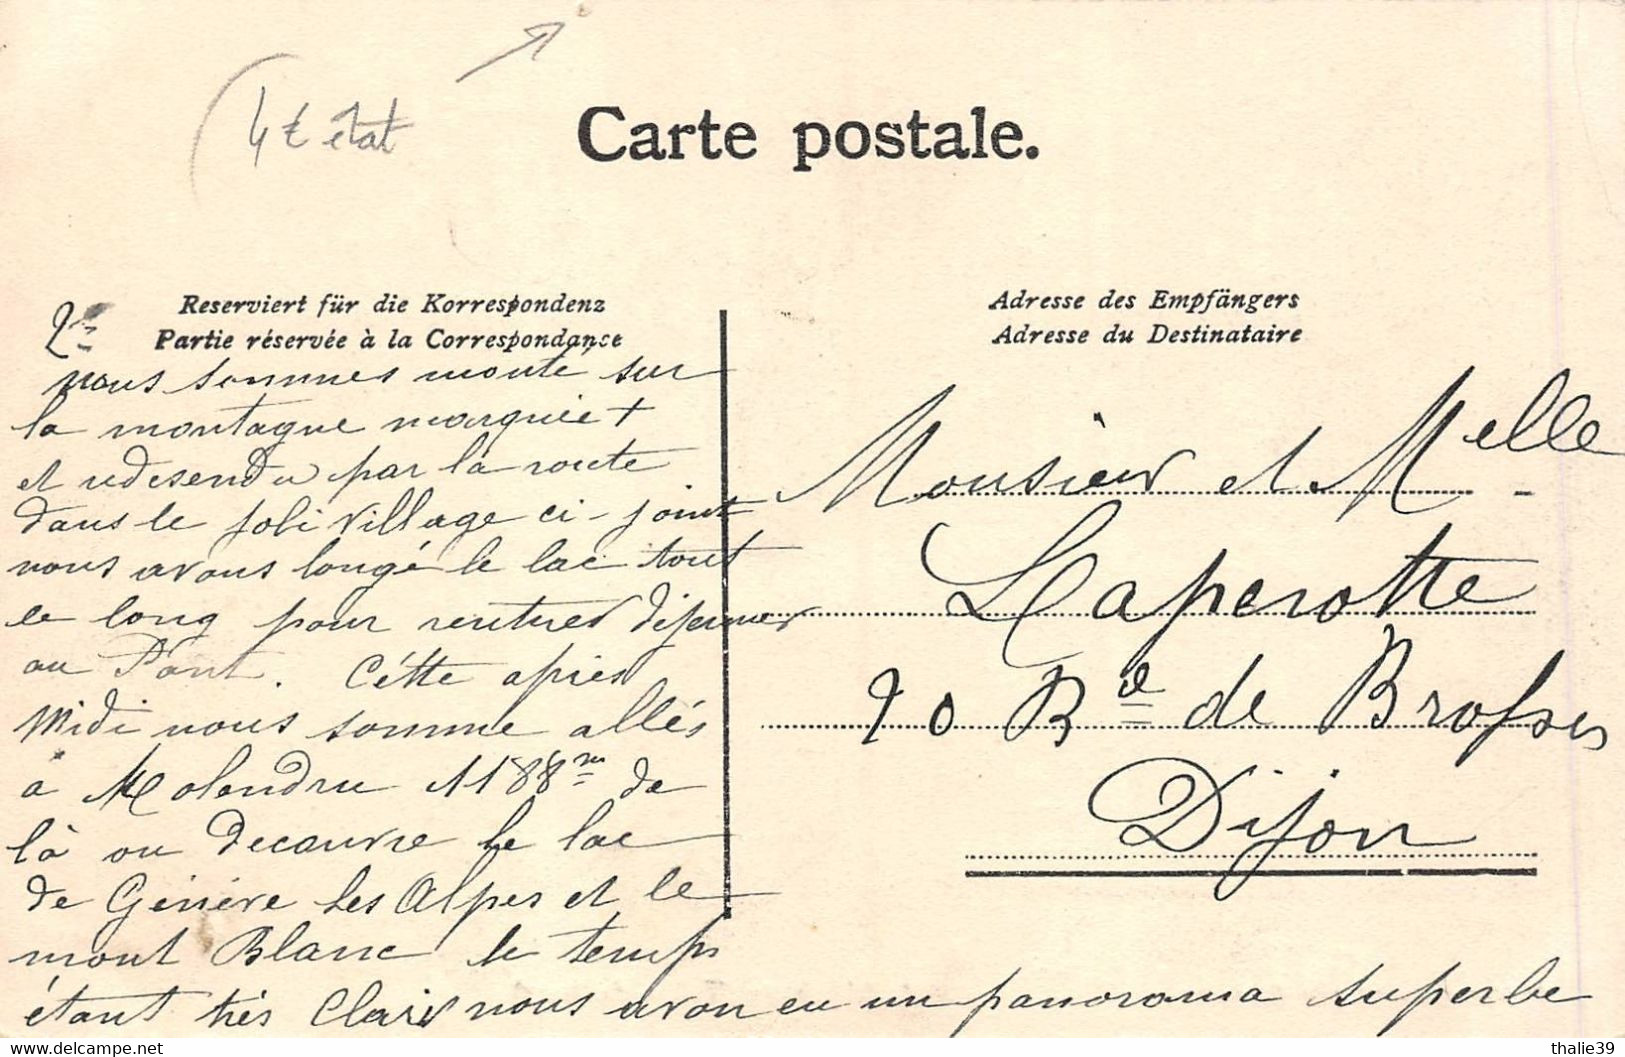 4€ état
Carte postale.
Reserviert für die Korrespondenz
Partie réservée à la Correspondance
Adresse des Empfängers
Adresse du Destinataire
2me
nous sommes monté sur
la montagne marquée +
et redesendu par la route
dans le joli village ci-joint
nous avons longé le lac tout
le long pour rentrer déjeuner
au Pont. Cette après
midi nous somme allés
à Molendru 1188m de
là on decouvre le lac
de Génève les Alpes et le
mont Blanc le temps
étant très clair nous avon eu un panorama superbe
Monsieur et Melle
Laperotte
20 Bd de Brosses
Dijon
https://www.delcampe.net
thalie39